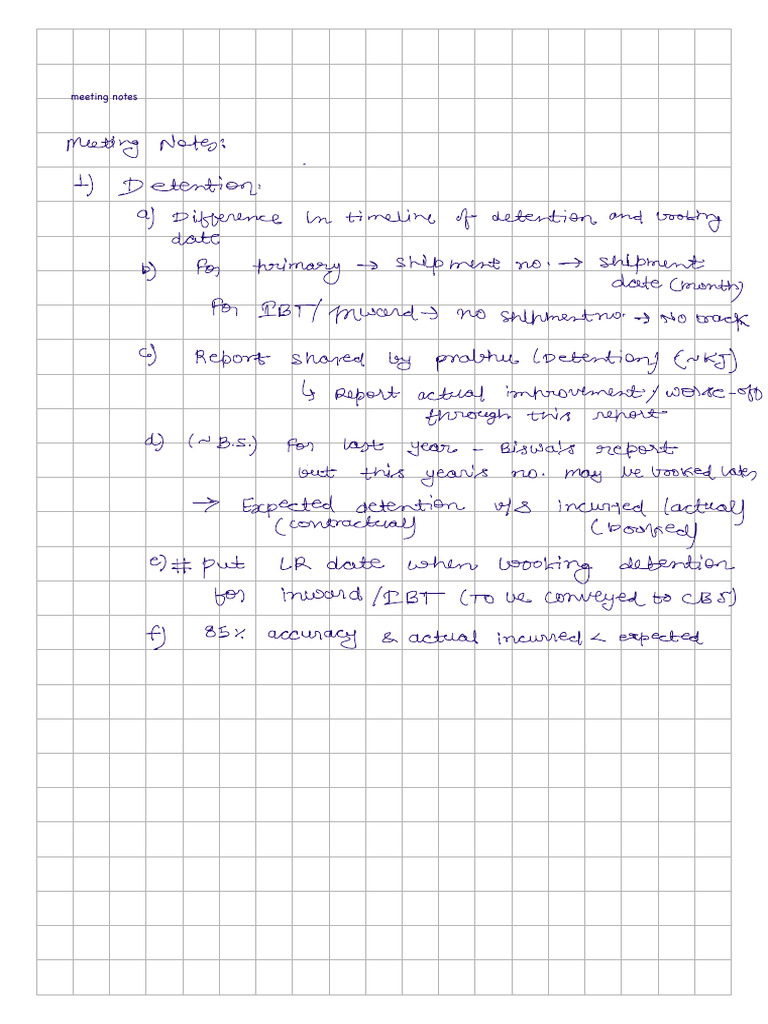 meeting notes
Meeting Notes:
1) Detention:
a) Difference in timeline of detention and booking
date
b) for primary → shipment no. → shipment
date (month)
for IBT/Inward → no shipment no. → No track
c) Report shared by prabhu (Detention) (~KJ)
↳ Report actual improvement/worse-off
through this report
d) (~B.S.) for last year - Biswa's report
but this year's no. may be booked later
→ Expected detention v/s incurred (actual)
(contractual) (booked)
e) # put LR date when booking detention
for inward/IBT (To be conveyed to CBS)
f) 85% accuracy & actual incurred < expected